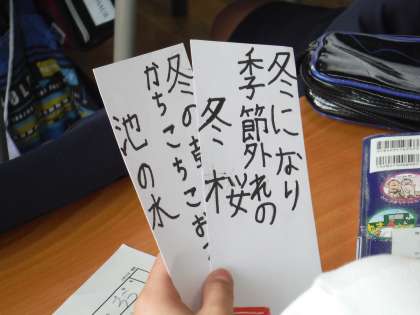 冬になり
季節外れの
冬桜
冬の朝
かちこちこお
池の水